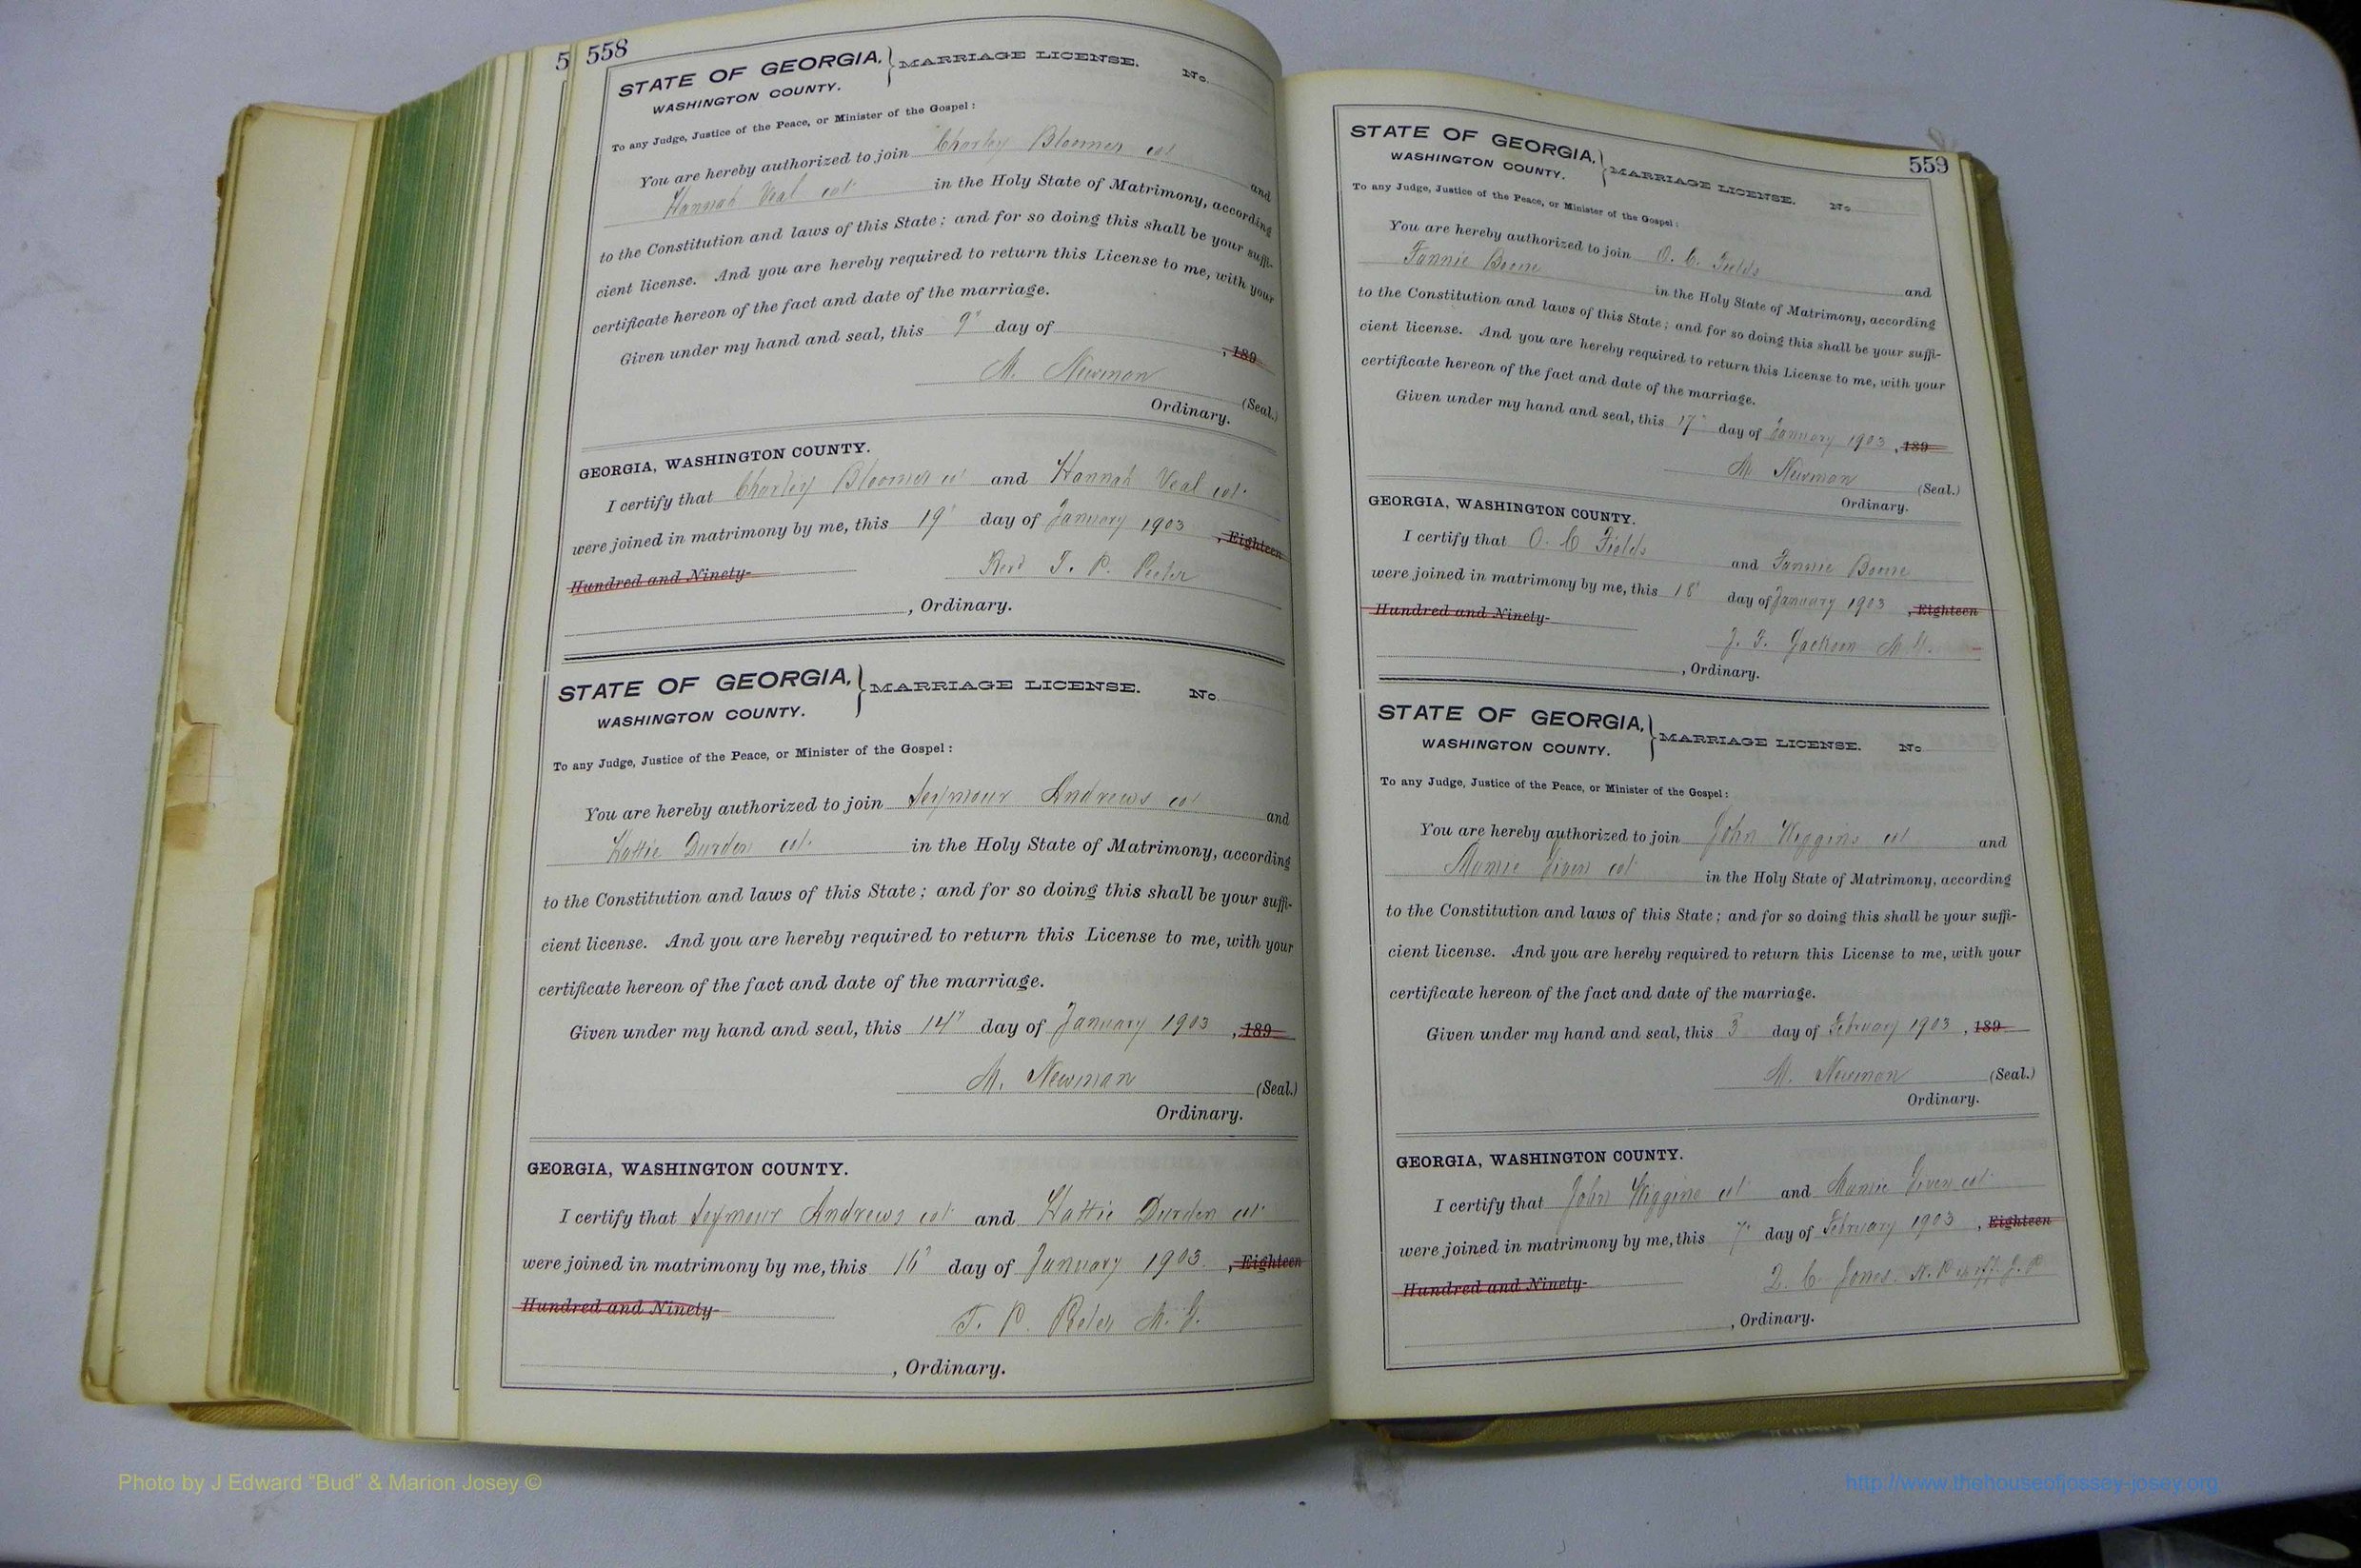 5 558
STATE OF GEORGIA, } MARRIAGE LICENSE. No.
WASHINGTON COUNTY.
To any Judge, Justice of the Peace, or Minister of the Gospel:
You are hereby authorized to join Charley Bloomer col and
Hannah Veal col in the Holy State of Matrimony, according
to the Constitution and laws of this State; and for so doing this shall be your suffi-
cient license. And you are hereby required to return this License to me, with your
certificate hereon of the fact and date of the marriage.
Given under my hand and seal, this 9" day of , 189
M. Newman (Seal.)
Ordinary.
GEORGIA, WASHINGTON COUNTY.
I certify that Charley Bloomer col and Hannah Veal col
were joined in matrimony by me, this 19" day of January 1903 , Eighteen
Hundred and Ninety- Revd T. P. Peeler
, Ordinary.
STATE OF GEORGIA, } MARRIAGE LICENSE. No.
WASHINGTON COUNTY.
To any Judge, Justice of the Peace, or Minister of the Gospel:
You are hereby authorized to join Seymour Andrews col and
Hattie Durden col. in the Holy State of Matrimony, according
to the Constitution and laws of this State; and for so doing this shall be your suffi-
cient license. And you are hereby required to return this License to me, with your
certificate hereon of the fact and date of the marriage.
Given under my hand and seal, this 14" day of January 1903 , 189
M. Newman (Seal.)
Ordinary.
GEORGIA, WASHINGTON COUNTY.
I certify that Seymour Andrews col and Hattie Durden col
were joined in matrimony by me, this 16" day of January 1903. , Eighteen
Hundred and Ninety- T. P. M. G.
, Ordinary.
559
STATE OF GEORGIA, } MARRIAGE LICENSE. No
WASHINGTON COUNTY.
To any Judge, Justice of the Peace, or Minister of the Gospel:
You are hereby authorized to join O. C. Fields and
Fannie Boone in the Holy State of Matrimony, according
to the Constitution and laws of this State; and for so doing this shall be your suffi-
cient license. And you are hereby required to return this License to me, with your
certificate hereon of the fact and date of the marriage.
Given under my hand and seal, this 17" day of January 1903 , 189
M. Newman (Seal.)
Ordinary.
GEORGIA, WASHINGTON COUNTY.
I certify that O. C Fields and Fannie Boone
were joined in matrimony by me, this 18" day of January 1903 , Eighteen
Hundred and Ninety- J. F. Jackson M. G.
, Ordinary.
STATE OF GEORGIA, } MARRIAGE LICENSE. No
WASHINGTON COUNTY.
To any Judge, Justice of the Peace, or Minister of the Gospel:
You are hereby authorized to join John Wiggins col and
Mamie col in the Holy State of Matrimony, according
to the Constitution and laws of this State; and for so doing this shall be your suffi-
cient license. And you are hereby required to return this License to me, with your
certificate hereon of the fact and date of the marriage.
Given under my hand and seal, this 3" day of February 1903 , 189
M. Newman (Seal.)
Ordinary.
GEORGIA, WASHINGTON COUNTY.
I certify that John Wiggins col and Mamie col
were joined in matrimony by me, this 7" day of February 1903 , Eighteen
Hundred and Ninety- Jones. N. P. J. P
, Ordinary.
Photo by J Edward “Bud” & Marion Josey ©
http://www.thehouseofjossey-josey.org